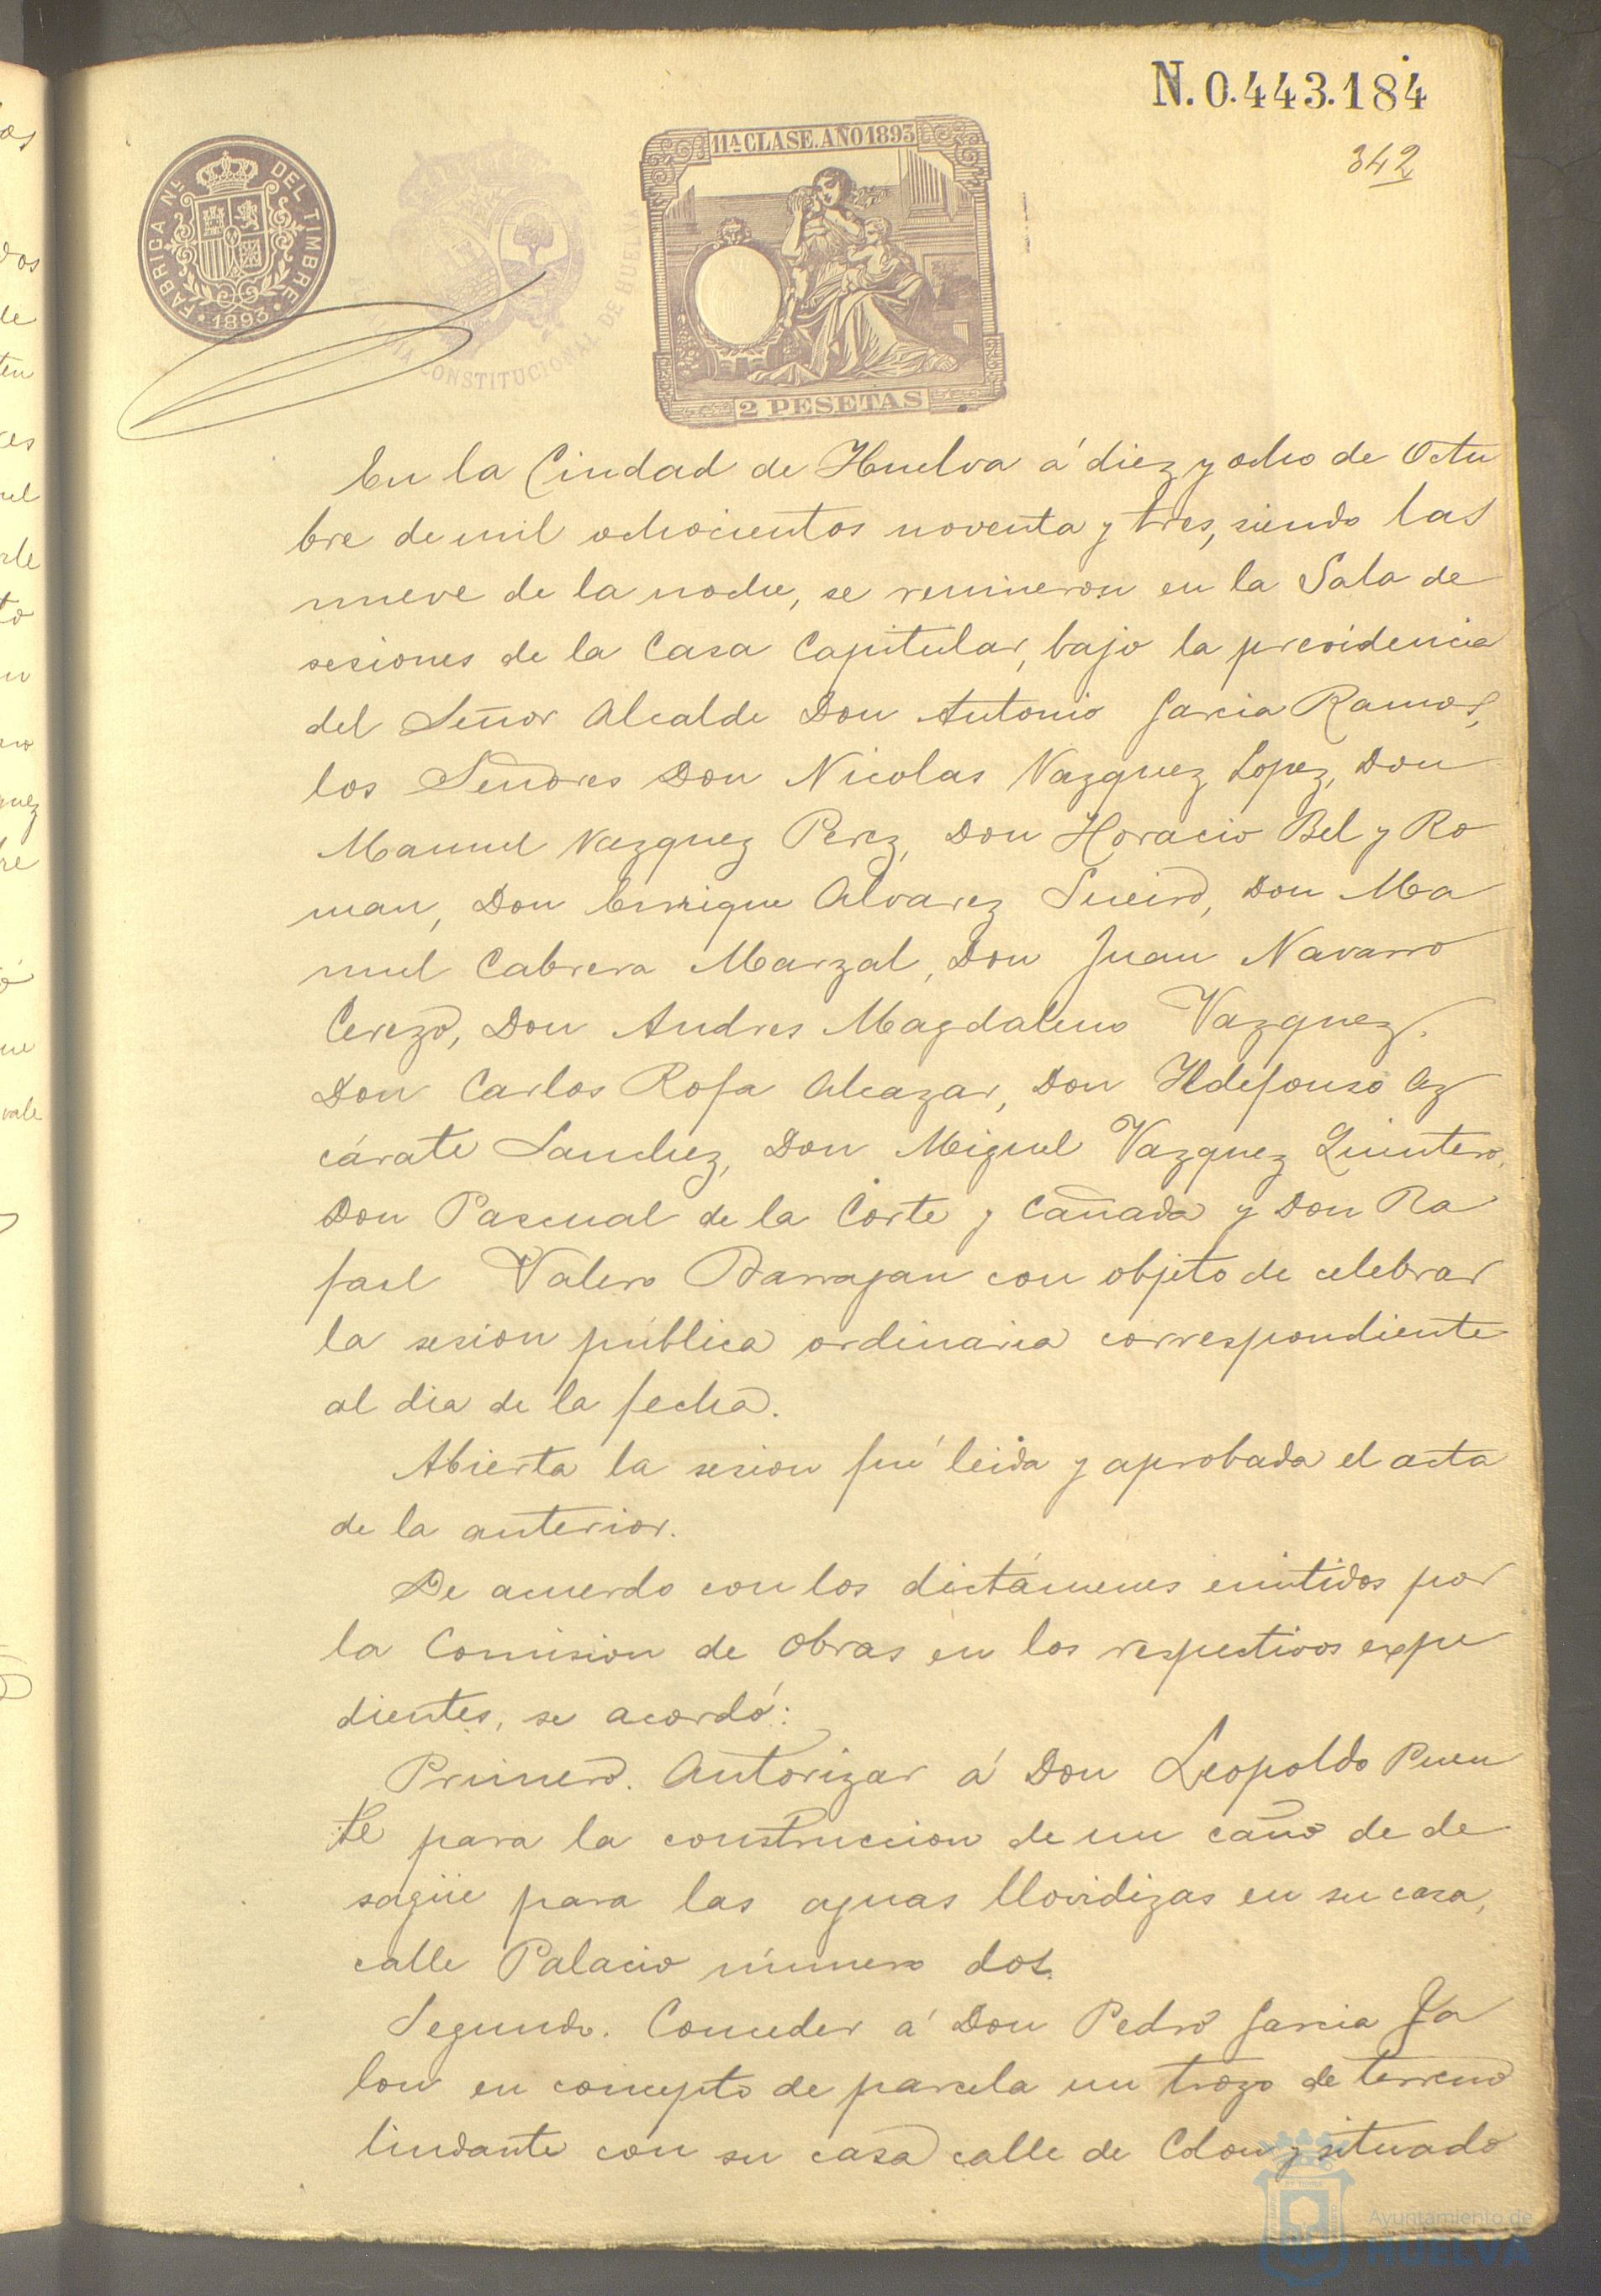 N. 0.443.184
342
FABRICA NL. DEL TIMBRE
1893
CONSTITUCIONAL DE HUEL
11ª CLASE. AÑO 1893
2 PESETAS
En la Ciudad de Huelva á diez y ocho de Octu
bre de mil ochocientos noventa y tres, siendo las
nueve de la noche, se reunieron en la Sala de
sesiones de la Casa Capitular, bajo la presidencia
del Señor Alcalde Don Antonio Garcia Ramos,
los Señores Don Nicolas Vazquez Lopez, Don
Manuel Vazquez Perez, Don Horacio Bel y Ro
man, Don Enrique Alvarez Sueiro, Don Ma
nuel Cabrera Marzal, Don Juan Navarro
Cerezo, Don Andres Magdaleno Vazquez,
Don Carlos Rofa Alcazar, Don Ildefonso Az
cárate Sanchez, Don Miguel Vazquez Quintero,
Don Pascual de la Corte y Cañada y Don Ra
fael Valero Barragan con objeto de celebrar
la sesion pública ordinaria correspondiente
al dia de la fecha.
Abierta la sesion fué leida y aprobada el acta
de la anterior.
De acuerdo con los dictámenes emitidos por
la Comision de Obras en los respectivos expe
dientes, se acordó:
Primero. Autorizar á Don Leopoldo Puen
te para la construccion de un caño de de
sagüe para las aguas llovidizas en su casa,
calle Palacio número dos.
Segundo. Conceder á Don Pedro Garcia Ja
lon en concepto de parcela un trozo de terreno
lindante con su casa calle de Colon y situado
Ayuntamiento de
HUELVA